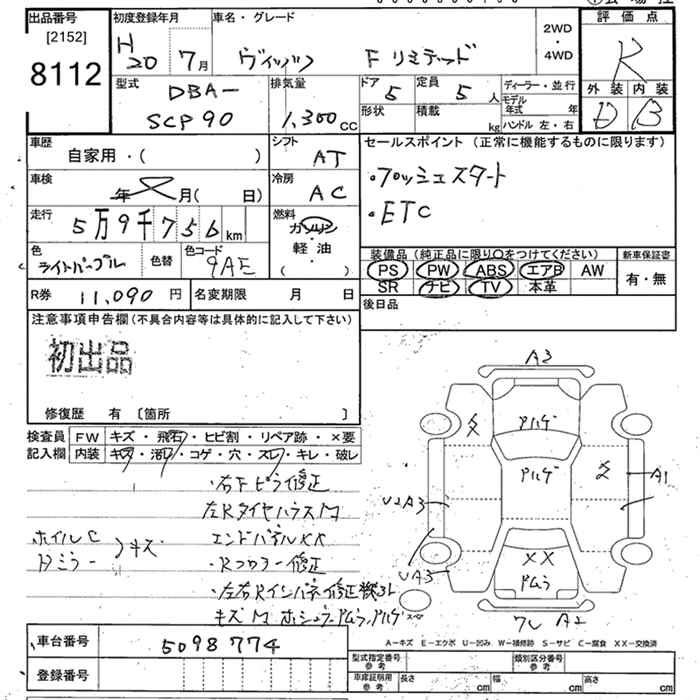 出品番号
[2152]
8112
初度登録年月
H
20 7月
車名・グレード
F リミテッド
2WD
・
4WD
評価点
R
型式
DBA-
SCP90
排気量
1,300cc
ドア
5
定員
5 人
形状
積載
kg
ディーラー・並行
モデル年式 年
ハンドル 左・右
外装 内装
D B
車歴
自家用・( )
シフト
AT
セールスポイント (正常に機能するものに限ります)
・プッシュスタート
・ETC
車検
年 月( 日)
冷房
AC
走行
5万9千756km
燃料
ガソリン
軽・油
( )
色
ライトパープル
色替
色コード
9AE
装備品(純正品に限り〇をつけてください)
PS PW ABS エアB AW
SR ナビ TV 本革
新車保証書
有・無
R券 11,090円
名変期限 月 日
後日品
注意事項申告欄(不具合内容等は具体的に記入して下さい)
初出品
修復歴 有 〔箇所 〕
検査員
記入欄
FW キズ・飛石・ヒビ割・リペア跡・×要
内装 キズ・汚れ・コゲ・穴・スレ・キレ・破レ
・右Fピラ修正
左RタイヤハウスM
ホイルC
Rミラー
キズ
エンドパネルXX
・Rフロアー修正
A3
アルゲ
アルゲ
A1
U2A3
UA3
XX
A2
A-キズ E-エクボ U-凹み W-補修跡 S-サビ C-腐食 XX-交換済
車台番号 5098774
登録番号
型式指定番号
参考
類別区分番号
参考
車庫証明用
参考
長さ cm
幅 cm
高さ cm